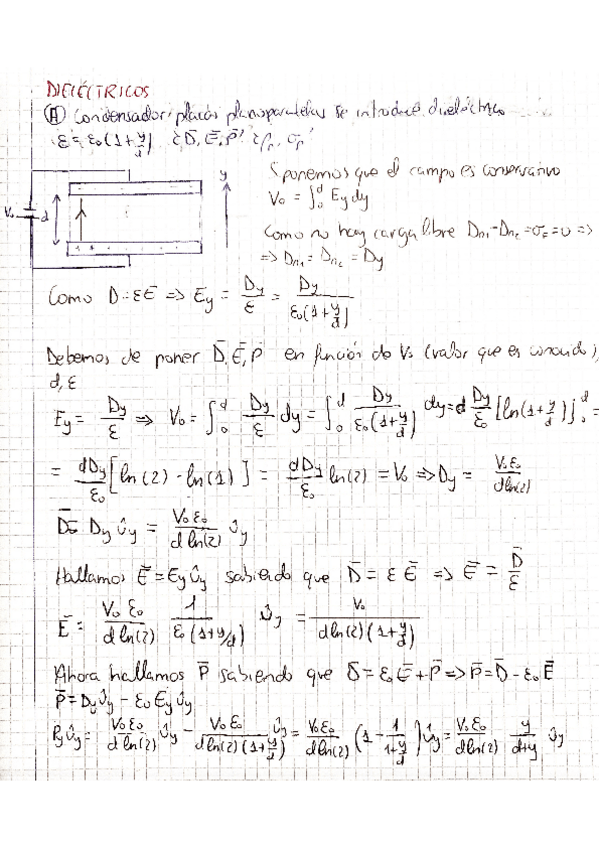 DIELÉCTRICOS
(A) Condensador placas planoparalelas se introduce dieléctrico
ε = ε₀(1+y/d) ¿D̄, Ē, P̄? ¿ρₚ, σₚ?
Sponemos que el campo es conservativo
V₀ = ∫₀ᵈ Ey dy
y
V₀
d
Como no hay carga libre Dn₁-Dn₂ = σF = 0 =>
=> Dn₁ = Dn₂ = Dy
Como D = εĒ => Ey = Dy/ε = Dy/(ε₀(1+y/d))
Debemos de poner D̄, Ē, P̄ en función de V₀ (valor que es conocido),
d, ε
Ey = Dy/ε => V₀ = ∫₀ᵈ Dy/ε dy = ∫₀ᵈ Dy/(ε₀(1+y/d)) dy = d Dy/ε₀ [ln(1+y/d)]₀ᵈ =
= dDy/ε₀ [ln(2) - ln(1)] = dDy/ε₀ ln(2) = V₀ => Dy = V₀ε₀/(d ln(2))
D̄ = Dy ûy = V₀ε₀/(d ln(2)) ûy
Hallamos Ē = Ey ûy sabiendo que D̄ = ε Ē => Ē = D̄/ε
Ē = V₀ε₀/(d ln(2)) 1/(ε₀(1+y/d)) ûy = V₀/(d ln(2)(1+y/d))
Ahora hallamos P̄ sabiendo que D̄ = ε₀Ē + P̄ => P̄ = D̄ - ε₀Ē
P̄ = Dy ûy - ε₀ Ey ûy
Py ûy = V₀ε₀/(d ln(2)) ûy - V₀ε₀/(d ln(2)(1+y/d)) ûy = V₀ε₀/(d ln(2)) (1 - 1/(1+y/d)) ûy = V₀ε₀/(d ln(2)) y/(d+y) ûy